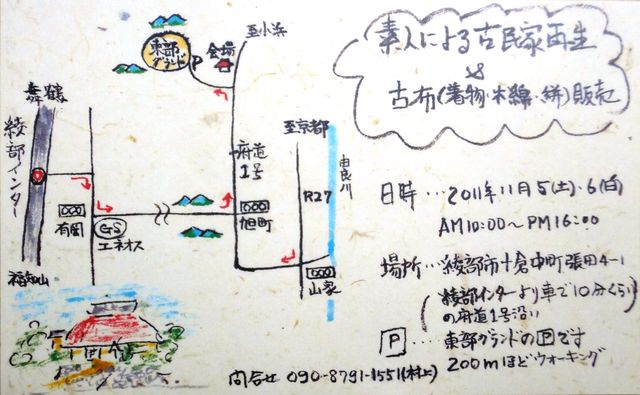 素人による古民家再生
&
古布(着物・木綿・絣)販売
日時…2011年11月5(土)・6(日)
AM10:00～PM16:00
場所…綾部市十倉中町張田4-1
(綾部インターより車で10分くらい
の府道1号沿い
P…東部グランドのPです
200mほどウォーキング
問合せ 090-8791-1551(村上)
至小浜
東部
グランド
P
会場
舞鶴
綾部インター
福知山
有岡
GS
エネオス
府道
1号
旭町
至京都
R27
由良川
山家